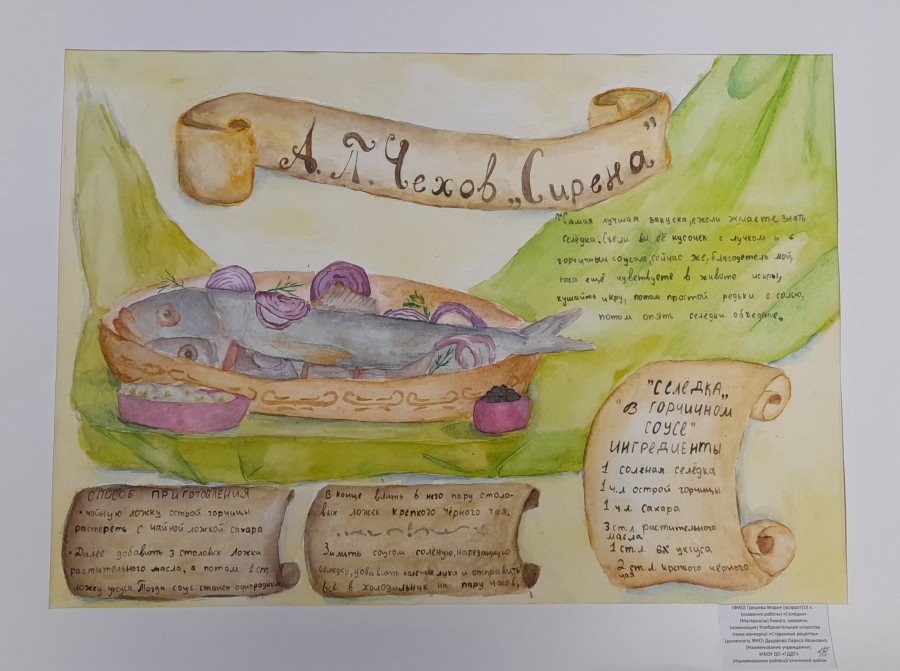 А. П. Чехов „Сирена”
"Самая лучшая закуска, ежели желаете знать
селёдка. Съели вы её кусочек с лучком и с
горчичным соусом, сейчас же, благодетель мой,
пока ещё чувствуете в животе искры,
кушайте икру, потом простой редьки с солью,
потом опять селедки объедение„
"СЕЛЁДКА„
"В ГОРЧИЧНОМ
СОУСЕ"
ИНГРЕДИЕНТЫ
1 солёная селёдка
1 ч.л острой горчицы
1 ч.л. сахара
3 ст л. растительного
масла
1 ст.л. 6% уксуса
2 ст.л. крепкого чёрного
чая
СПОСОБ ПРИГОТОВЛЕНИЯ
• чайную ложку острой горчицы
растереть с чайной ложкой сахара
• Далее добавить 3 столовых ложки
растительного масла, а потом 1 ст
ложку уксуса. Тогда соус станет однородным
В конце влить в него пару столо-
вых ложек крепкого чёрного чая,
Залить соусом солёную, нарезанную
селедку, добавить колечки лука и отправить
всё в холодильник на пару часов.
(ФИО) Грешева Мария (возраст)13 л.
(название работы) «Селёдка»
(Материалы) бумага, акварель
(номинация) Изобразительное искусство
(тема конкурса) «Старинные рецепты»
(должность ФИО) Дударева Лариса Ивановна,
(Наименование учреждения)
МБОУ ДО «ГДДТ»
(Наименование района) Гатчинский район
18